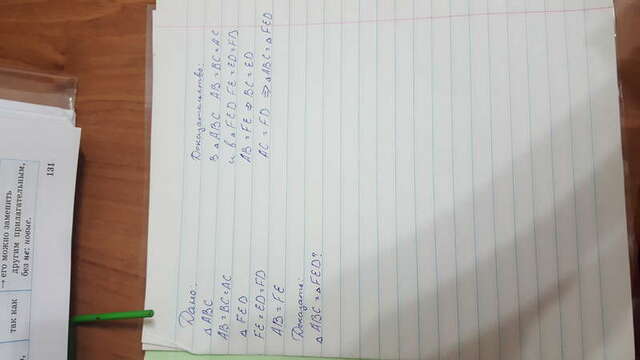 так как
→ его можно заменить
другим прилагательным,
без не: новые.
131
Дано:
△ABC
AB=BC=AC
△FED
FE=ED=FD
AB=FE
Доказать:
△ABC=△FED?
Доказательство:
В △ABC AB=BC=AC
и в △FED FE=ED=FD
AB=FE ⇒ BC=ED
AC=FD ⇒ △ABC=△FED